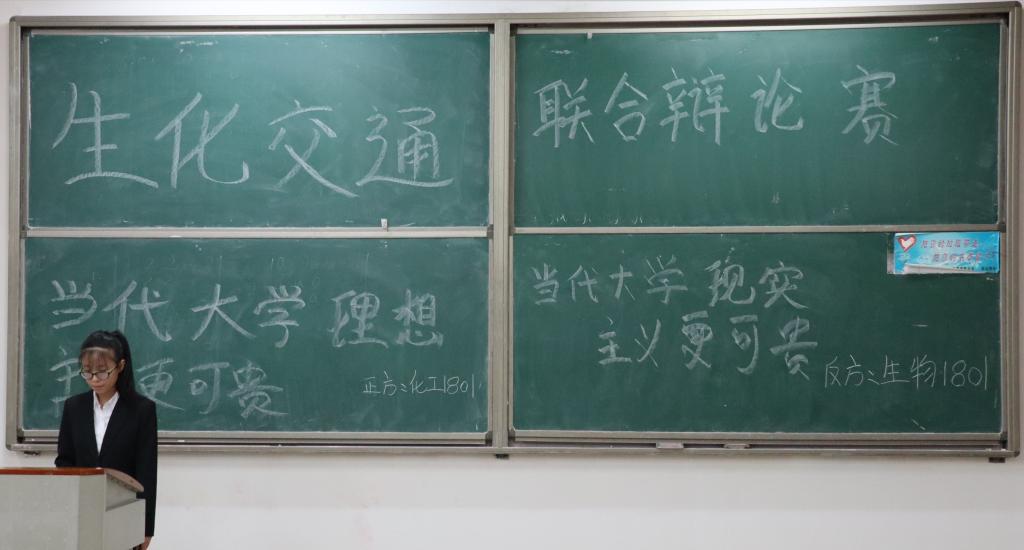 生化交通
联合辩论赛
当代大学理想
主更可贵
正方:化工1801
当代大学现实
主义更可贵
反方:生物1801